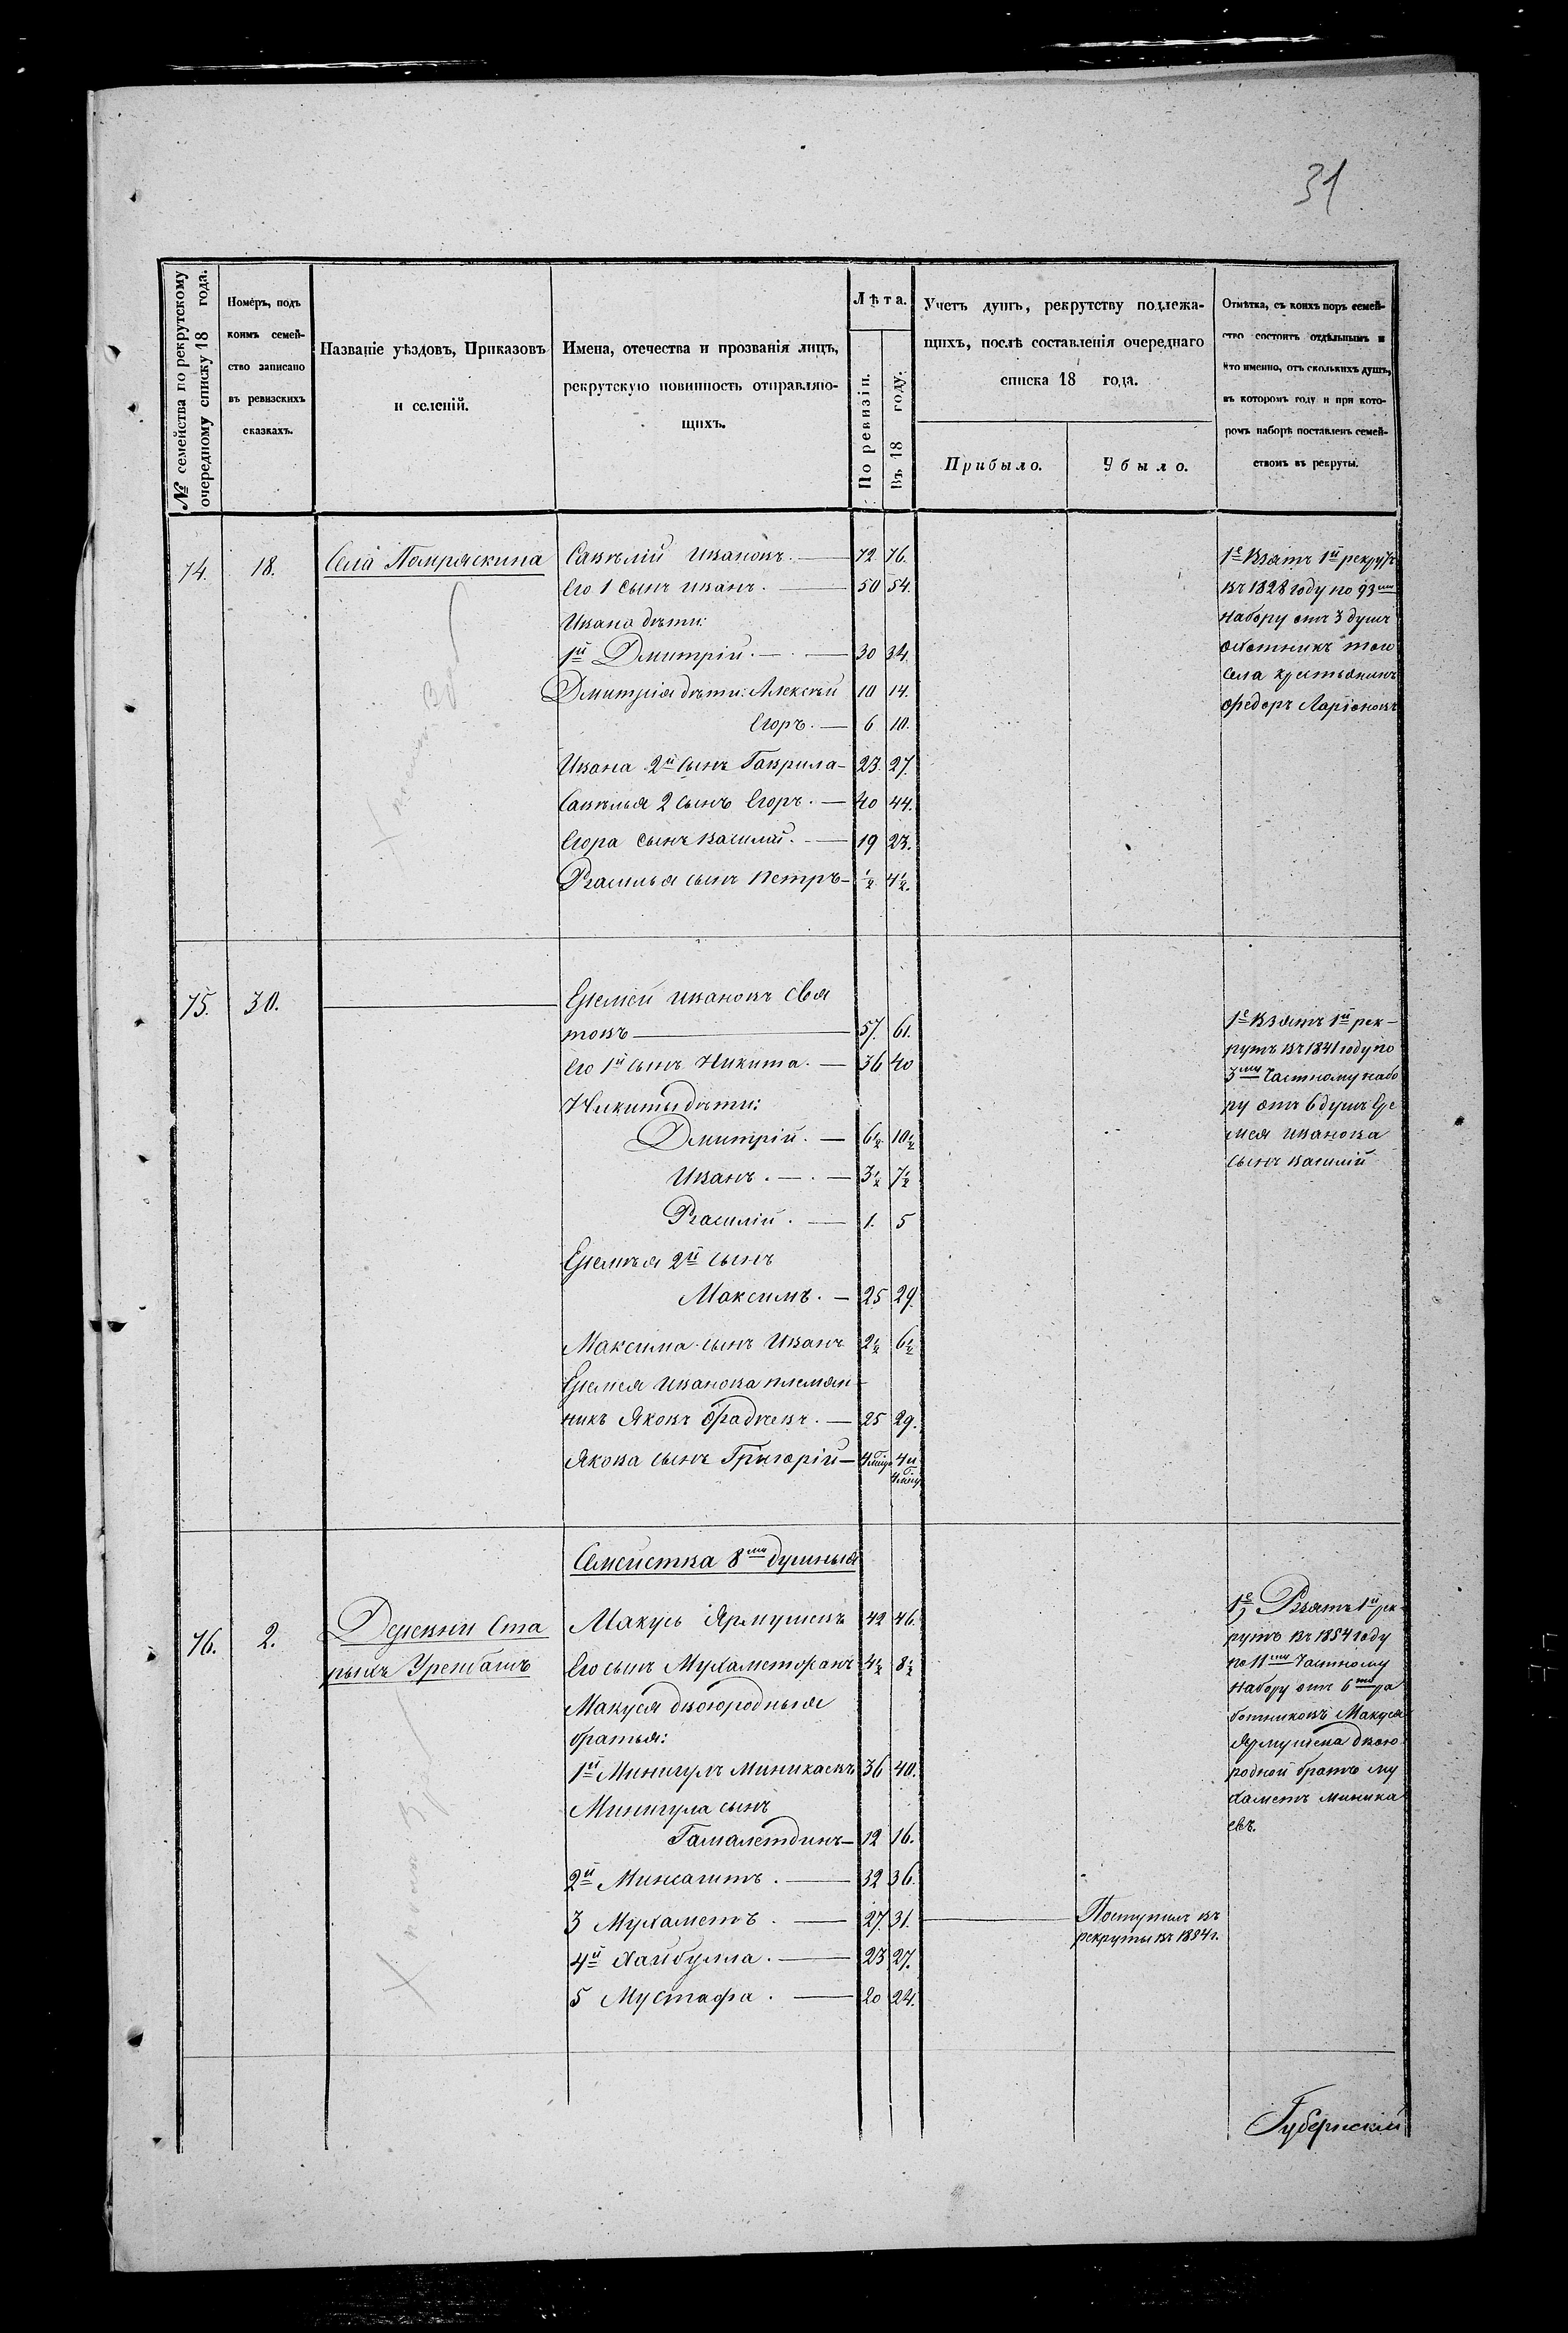 31
№ семейства по рекрутскому
очередному списку 18 года.
Номеръ, подъ
коимъ семей-
ство записано
въ ревизскихъ
сказкахъ.
Названіе уѣздовъ, Приказовъ
и селеній.
Имена, отечества и прозванія лицъ,
рекрутскую повинность отправляю-
щихъ.
Лѣта.
По ревизіи.
Въ 18 году.
Учетъ душъ, рекрутству подлежа-
щихъ, послѣ составленія очереднаго
списка 18 года.
Прибыло.
Убыло.
Отмѣтка, съ коихъ поръ семей-
ство состоитъ отдѣльнымъ и
кто именно, отъ сколькихъ душъ,
въ которомъ году и при кото-
ромъ наборѣ поставленъ семей-
ствомъ въ рекруты.
74. 18. Села Помряскина
Савелій Ивановъ. 72 76.
Его 1 сынъ Иванъ. 50 54.
Ивана дѣти:
1й Дмитрій. 30 34.
Дмитрія дѣти: Алексѣй 10 14.
Егоръ. 6 10.
Ивана 2й сынъ Гаврила 23. 27.
Савелья 2 сынъ Егоръ. 40 44.
Егора сынъ Василій. 19 23.
Василья сынъ Петръ ½ 4½.
1е Взятъ 1й рекрутъ
въ 1828 году по 93му
набору отъ 3 душъ
охотникъ того
села крестьянинъ
Федоръ Ларіоновъ
75. 30.
Еремей Ивановъ Свя
товъ 57. 61.
Его 1й сынъ Никита. 36 40
Никиты дѣти:
Дмитрій. 6½ 10½
Иванъ. 3½ 7½
Василій. 1. 5
Еремѣя 2й сынъ
Максимъ. 25 29.
Максима сынъ Иванъ 2½ 6½
Еремея Иванова племян-
никъ Яковъ Фадѣевъ. 25 29.
Якова сынъ Григорій 4
1е Взятъ 1й рек-
рутъ въ 1841 году по
3му частному набо
ру отъ 6 душъ Ере
мея Иванова
сынъ Василій
Семейства 8ми душныя
76. 2. Деревни Ста
рыхъ Уренбашъ
Макусь Ярмушевъ 42 46.
Его сынъ Мухаметфанъ 4½ 8½
Макуся двоюродныя
братья:
1й Минигулъ Миникаевъ 36 40.
Минигула сынъ
Гамалетдинъ 12 16.
2й Минсагитъ. 32 36.
3 Мухаметъ. 27. 31.
Поступилъ въ
рекруты въ 1854 г.
4й Хайбулла. 23 27.
5 Мустафа. 20 24.
1е Взятъ 1й рек-
рутъ въ 1854 году
по 11му частному
набору отъ 6ти ра
ботниковъ Макуся
Ярмушева двою
родной братъ Му
хаметъ Миника
евъ.
Губернскій